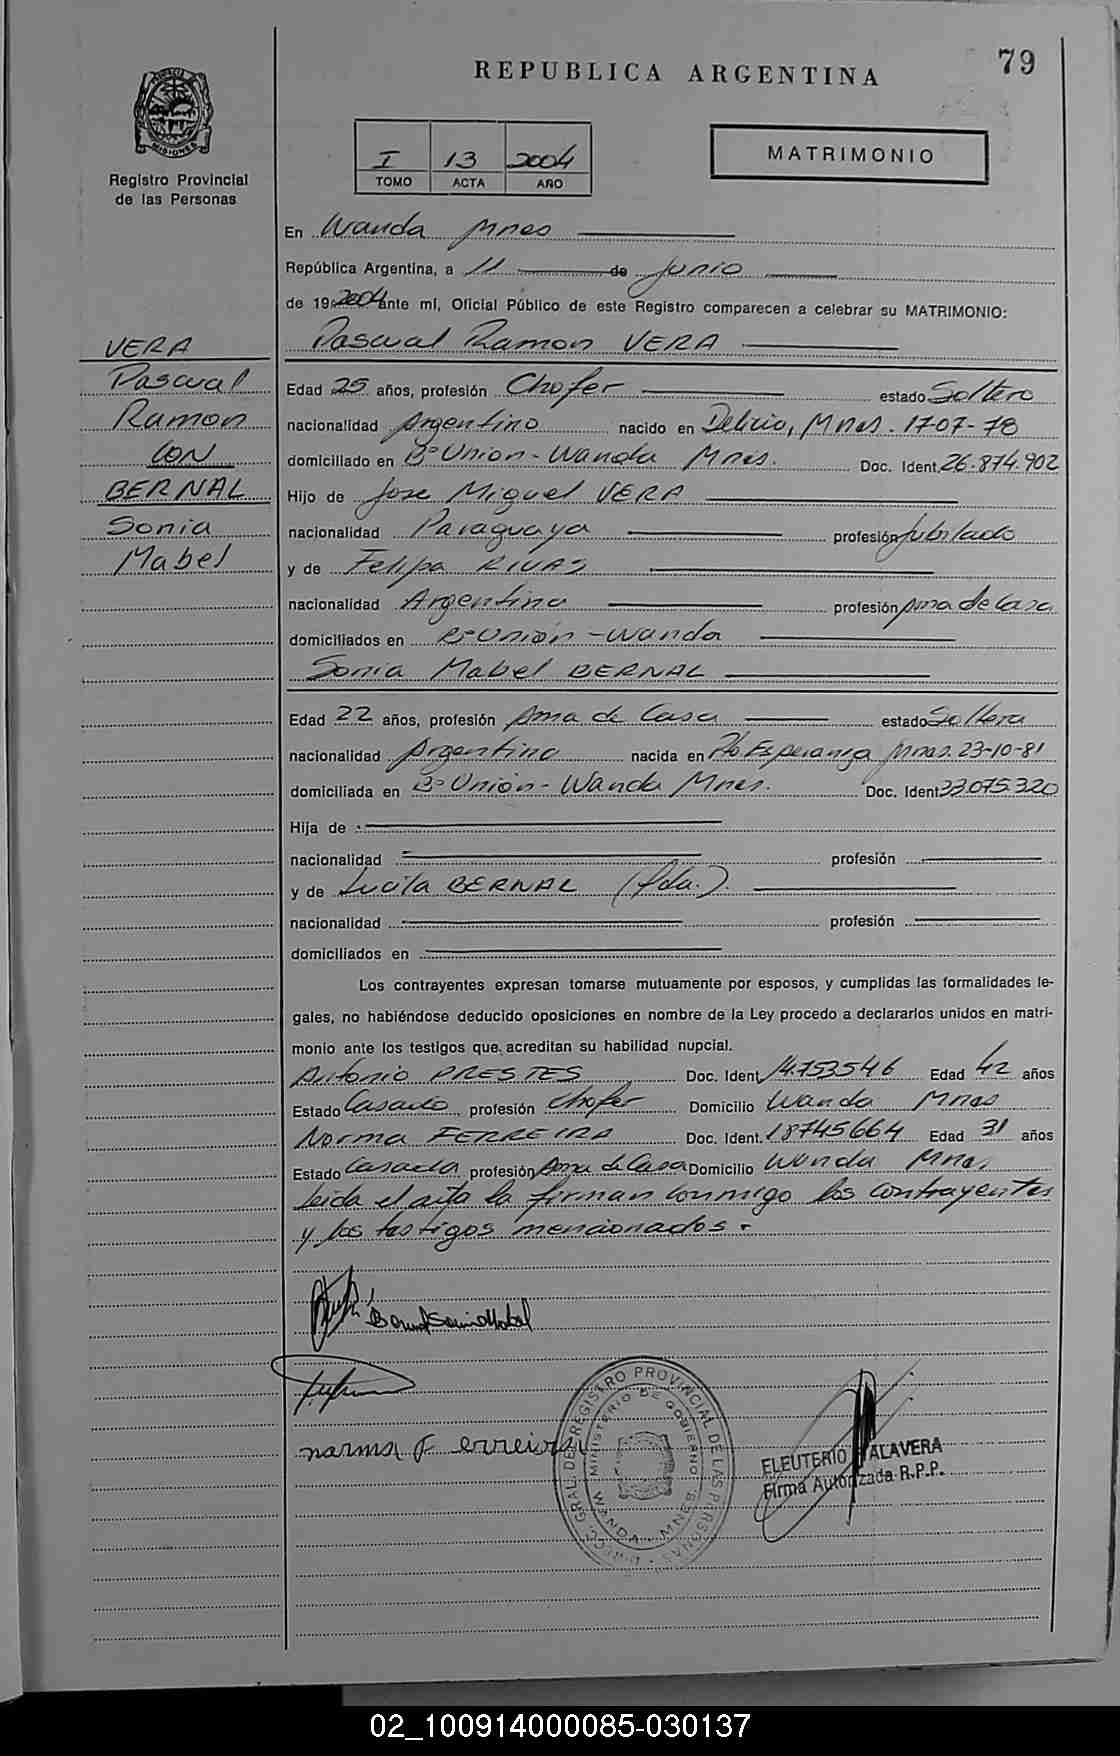 79
REPUBLICA ARGENTINA
PROVINCIA DE MISIONES
Registro Provincial
de las Personas
I 13 2004
TOMO ACTA AÑO
MATRIMONIO
En Wanda Mnes
República Argentina, a 11 de Junio
de 19 2004 ante mí, Oficial Público de este Registro comparecen a celebrar su MATRIMONIO:
Pascual Ramon VERA
VERA
Pascual
Ramon
CON
BERNAL
Sonia
Mabel
Edad 25 años, profesión Chofer estado Soltero
nacionalidad Argentino nacido en Delicia, Mnes. 17-07-78
domiciliado en B° Union - Wanda Mnes. Doc. Ident. 26.874.902
Hijo de Jose Miguel VERA
nacionalidad Paraguaya profesión Jubilado
y de Felipa RIVAS
nacionalidad Argentina profesión Ama de Casa
domiciliados en B° Unión - Wanda
Sonia Mabel BERNAL
Edad 22 años, profesión Ama de Casa estado Soltera
nacionalidad Argentina nacida en Pto Esperanza Mnes. 23-10-81
domiciliada en B° Unión - Wanda Mnes. Doc. Ident. 33.075.320
Hija de
nacionalidad profesión
y de Lucila BERNAL (fda.).
nacionalidad profesión
domiciliados en
Los contrayentes expresan tomarse mutuamente por esposos, y cumplidas las formalidades le-
gales, no habiéndose deducido oposiciones en nombre de la Ley procedo a declararlos unidos en matri-
monio ante los testigos que acreditan su habilidad nupcial.
Antonio PRESTES Doc. Ident. 14.753546 Edad 42 años
Estado Casado profesión Chofer Domicilio Wanda Mnes
Norma FERREIRA Doc. Ident. 18745664 Edad 31 años
Estado Casada profesión Ama de Casa Domicilio Wanda Mnes.
Leída el acta la firman conmigo los contrayentes
y los testigos mencionados.
Bernal Sonia Mabel
norma Ferreira
DIRECC. GRAL. DEL REGISTRO PROVINCIAL DE LAS PERSONAS
MINISTERIO DE GOBIERNO
WANDA - MNES.
ELEUTERIO TALAVERA
Firma Autorizada R.P.P.
02_100914000085-030137